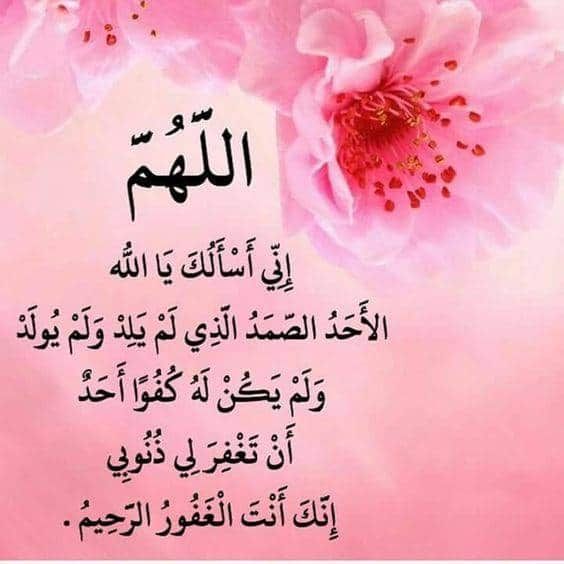 اللَّهُمَّ
إِنِّي أَسْأَلُكَ يَا اللّٰه
الأَحَدُ الصَّمَدُ الَّذِي لَمْ يَلِدْ وَلَمْ يُولَدْ
وَلَمْ يَكُنْ لَهُ كُفُوًا أَحَدٌ
أَنْ تَغْفِرَ لِي ذُنُوبِي
إِنَّكَ أَنْتَ الْغَفُورُ الرَّحِيمُ .